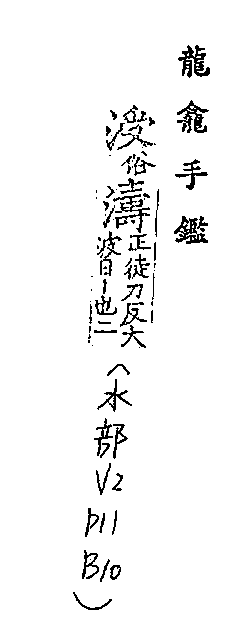 龍龕手鑑
㴞俗濤正徒刀反大
波曰丨也二
(水部V2P11B10)